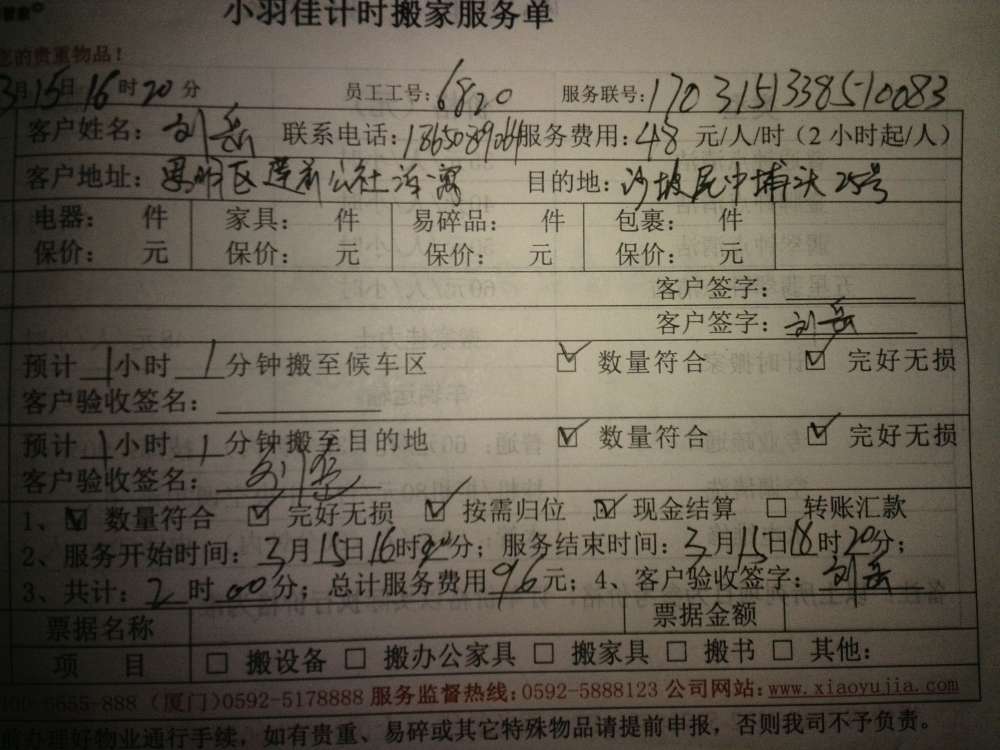 小羽佳计时搬家服务单
您的贵重物品！
3月15日16时20分 员工工号：6820 服务联号：170315133851-0083
客户姓名：刘岳 联系电话： 服务费用：48元/人/时（2小时起/人）
客户地址：思明区莲前公社 目的地：沙坡尾中埔头25号
电器： 件 家具： 件 易碎品： 件 包裹： 件
保价： 元 保价： 元 保价： 元 保价： 元
客户签字：
客户签字：刘岳
预计1小时1分钟搬至候车区 ☑ 数量符合 ☑ 完好无损
客户验收签名：
预计1小时1分钟搬至目的地 ☑ 数量符合 ☑ 完好无损
客户验收签名：刘岳
1、☑ 数量符合 ☑ 完好无损 ☑ 按需归位 ☑ 现金结算 □ 转账汇款
2、服务开始时间：3月15日16时20分；服务结束时间：3月15日18时20分；
3、共计：2时00分；总计服务费用96元；4、客户验收签字：刘岳
票据名称 票据金额
项 目 □ 搬设备 □ 搬办公家具 □ 搬家具 □ 搬书 □ 其他：
-6655-888（厦门）0592-5178888 服务监督热线：0592-5888123 公司网站：www.xiaoyujia.com
前办理好物业通行手续，如有贵重、易碎或其它特殊物品请提前申报，否则我司不予负责。